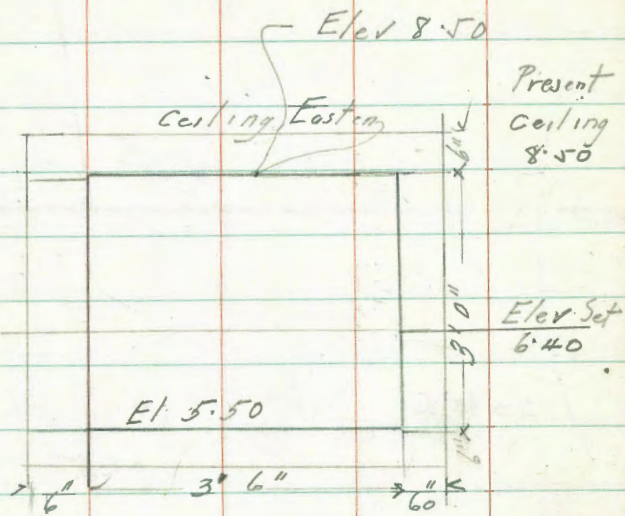 Elev 8.50
Present
Ceiling
8.50
Ceiling Eastern
6"
3' 0"
Elev Set
6.40
El 5.50
6"
6"
3' 6"
60"